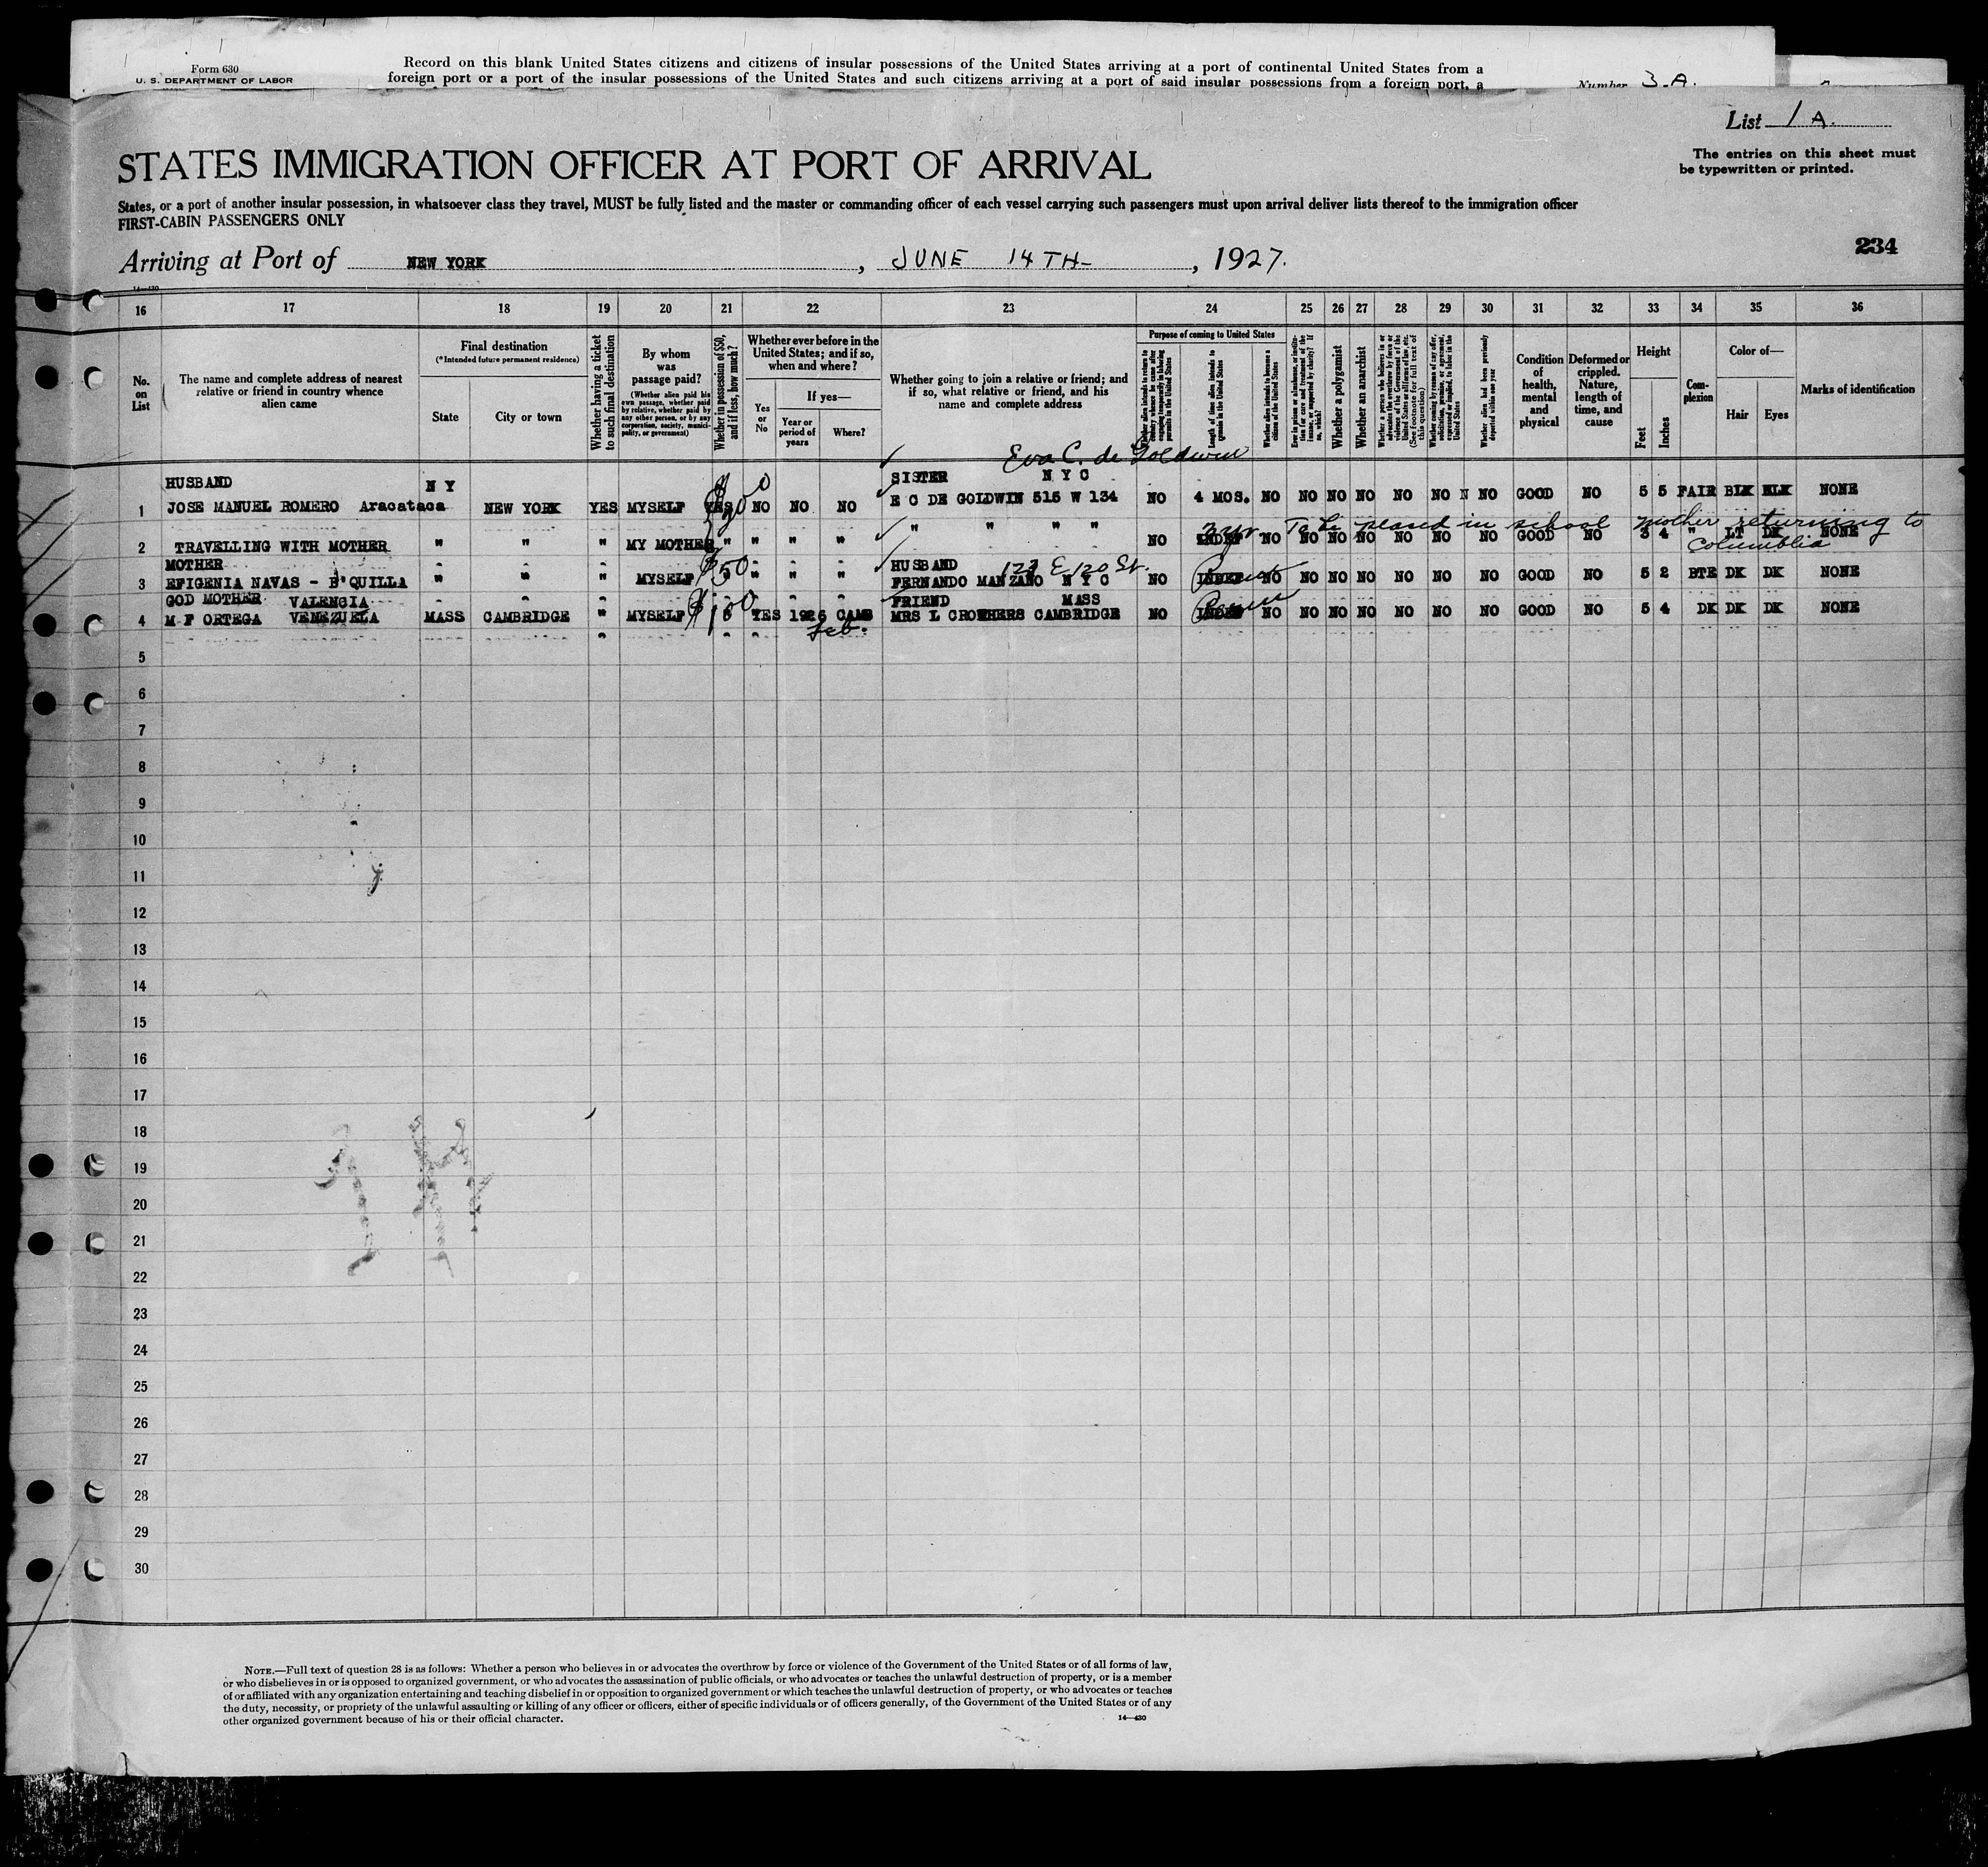 Form 630
U. S. DEPARTMENT OF LABOR
Record on this blank United States citizens and citizens of insular possessions of the United States arriving at a port of continental United States from a
foreign port or a port of the insular possessions of the United States and such citizens arriving at a port of said insular possessions from a foreign port, a
Number 3-A.
List 1 A.
The entries on this sheet must
be typewritten or printed.
STATES IMMIGRATION OFFICER AT PORT OF ARRIVAL
States, or a port of another insular possession, in whatsoever class they travel, MUST be fully listed and the master or commanding officer of each vessel carrying such passengers must upon arrival deliver lists thereof to the immigration officer
FIRST-CABIN PASSENGERS ONLY
234
Arriving at Port of NEW YORK, JUNE 14TH-, 1927.
14-430
16 17 18 19 20 21 22 23 24 25 26 27 28 29 30 31 32 33 34 35 36
No. on List
The name and complete address of nearest relative or friend in country whence alien came
Final destination
(*Intended future permanent residence)
State
City or town
Whether having a ticket to such final destination
By whom was passage paid?
(Whether alien paid his own passage, whether paid by relative, whether paid by any other person, or by any corporation, society, municipality, or government)
Whether in possession of $50, and if less, how much?
Whether ever before in the United States; and if so, when and where?
Yes or No
If yes—
Year or period of years
Where?
Whether going to join a relative or friend; and if so, what relative or friend, and his name and complete address
Purpose of coming to United States
Length of time alien intends to remain in the United States
Whether alien intends to become a citizen of the United States
Whether a polygamist
Whether an anarchist
Whether alien had been previously deported within one year
Condition of health, mental and physical
Deformed or crippled. Nature, length of time, and cause
Height
Feet
Inches
Complexion
Color of—
Hair
Eyes
Marks of identification
Eva C. de Goldwin
HUSBAND N Y SISTER N Y C
1 JOSE MANUEL ROMERO Aracataca NEW YORK YES MYSELF YES NO NO NO E C DE GOLDWIN 515 W 134 NO 4 MOS. NO NO NO NO NO NO N NO GOOD NO 5 5 FAIR BLK BLK NONE
3 yr To be placed in school mother returning to
Columblia
2 TRAVELLING WITH MOTHER " " " MY MOTHER " " " " " " " " NO INDEF NO NO NO NO NO NO NO GOOD NO 3 4 " LT DK NONE
MOTHER HUSBAND 123 E 120 St.
3 EFIGENIA NAVAS - B'QUILLA " " " MYSELF $50 " " " FERNANDO MANZANO N Y C NO INDEF NO NO NO NO NO NO NO GOOD NO 5 2 BTE DK DK NONE
GOD MOTHER VALENCIA FRIEND MASS
4 M F ORTEGA VENEZUELA MASS CAMBRIDGE " MYSELF $100 YES 1926 CAMB MRS L CROWHERS CAMBRIDGE NO INDEF NO NO NO NO NO NO NO GOOD NO 5 4 DK DK DK NONE
Feb.
5
6
7
8
9
10
11
12
13
14
15
16
17
18
19
20
21
22
23
24
25
26
27
28
29
30
NOTE.—Full text of question 28 is as follows: Whether a person who believes in or advocates the overthrow by force or violence of the Government of the United States or of all forms of law,
or who disbelieves in or is opposed to organized government, or who advocates the assassination of public officials, or who advocates or teaches the unlawful destruction of property, or is a member
of or affiliated with any organization entertaining and teaching disbelief in or opposition to organized government or which teaches the unlawful destruction of property, or who advocates or teaches
the duty, necessity, or propriety of the unlawful assaulting or killing of any officer or officers, either of specific individuals or of officers generally, of the Government of the United States or of any
other organized government because of his or their official character.
14—430